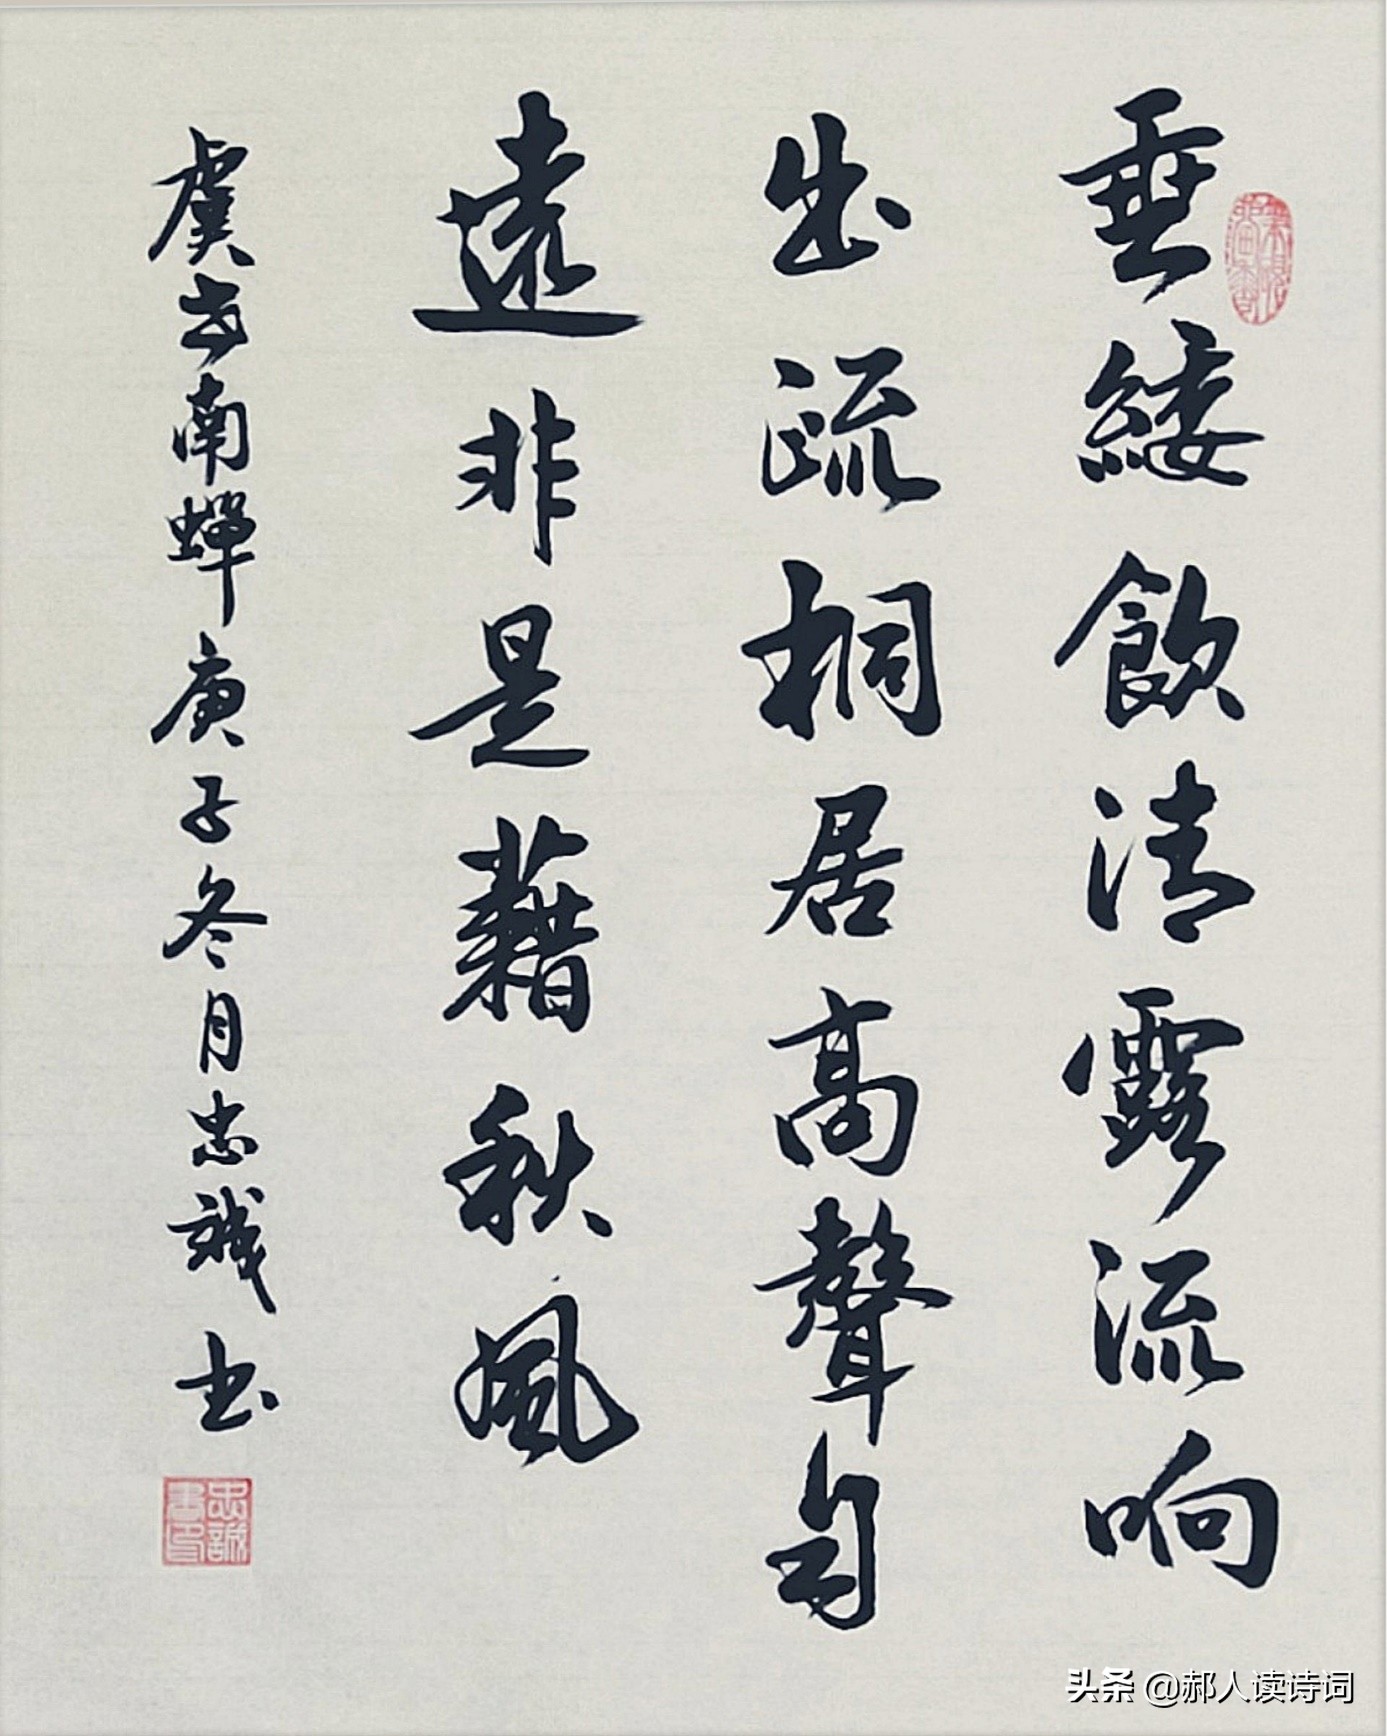 垂緌飲清露流响
出疏桐居高聲自
遠非是藉秋風
虞世南蟬庚子冬月忠誠书
忠誠書印
头条 @郝人读诗词